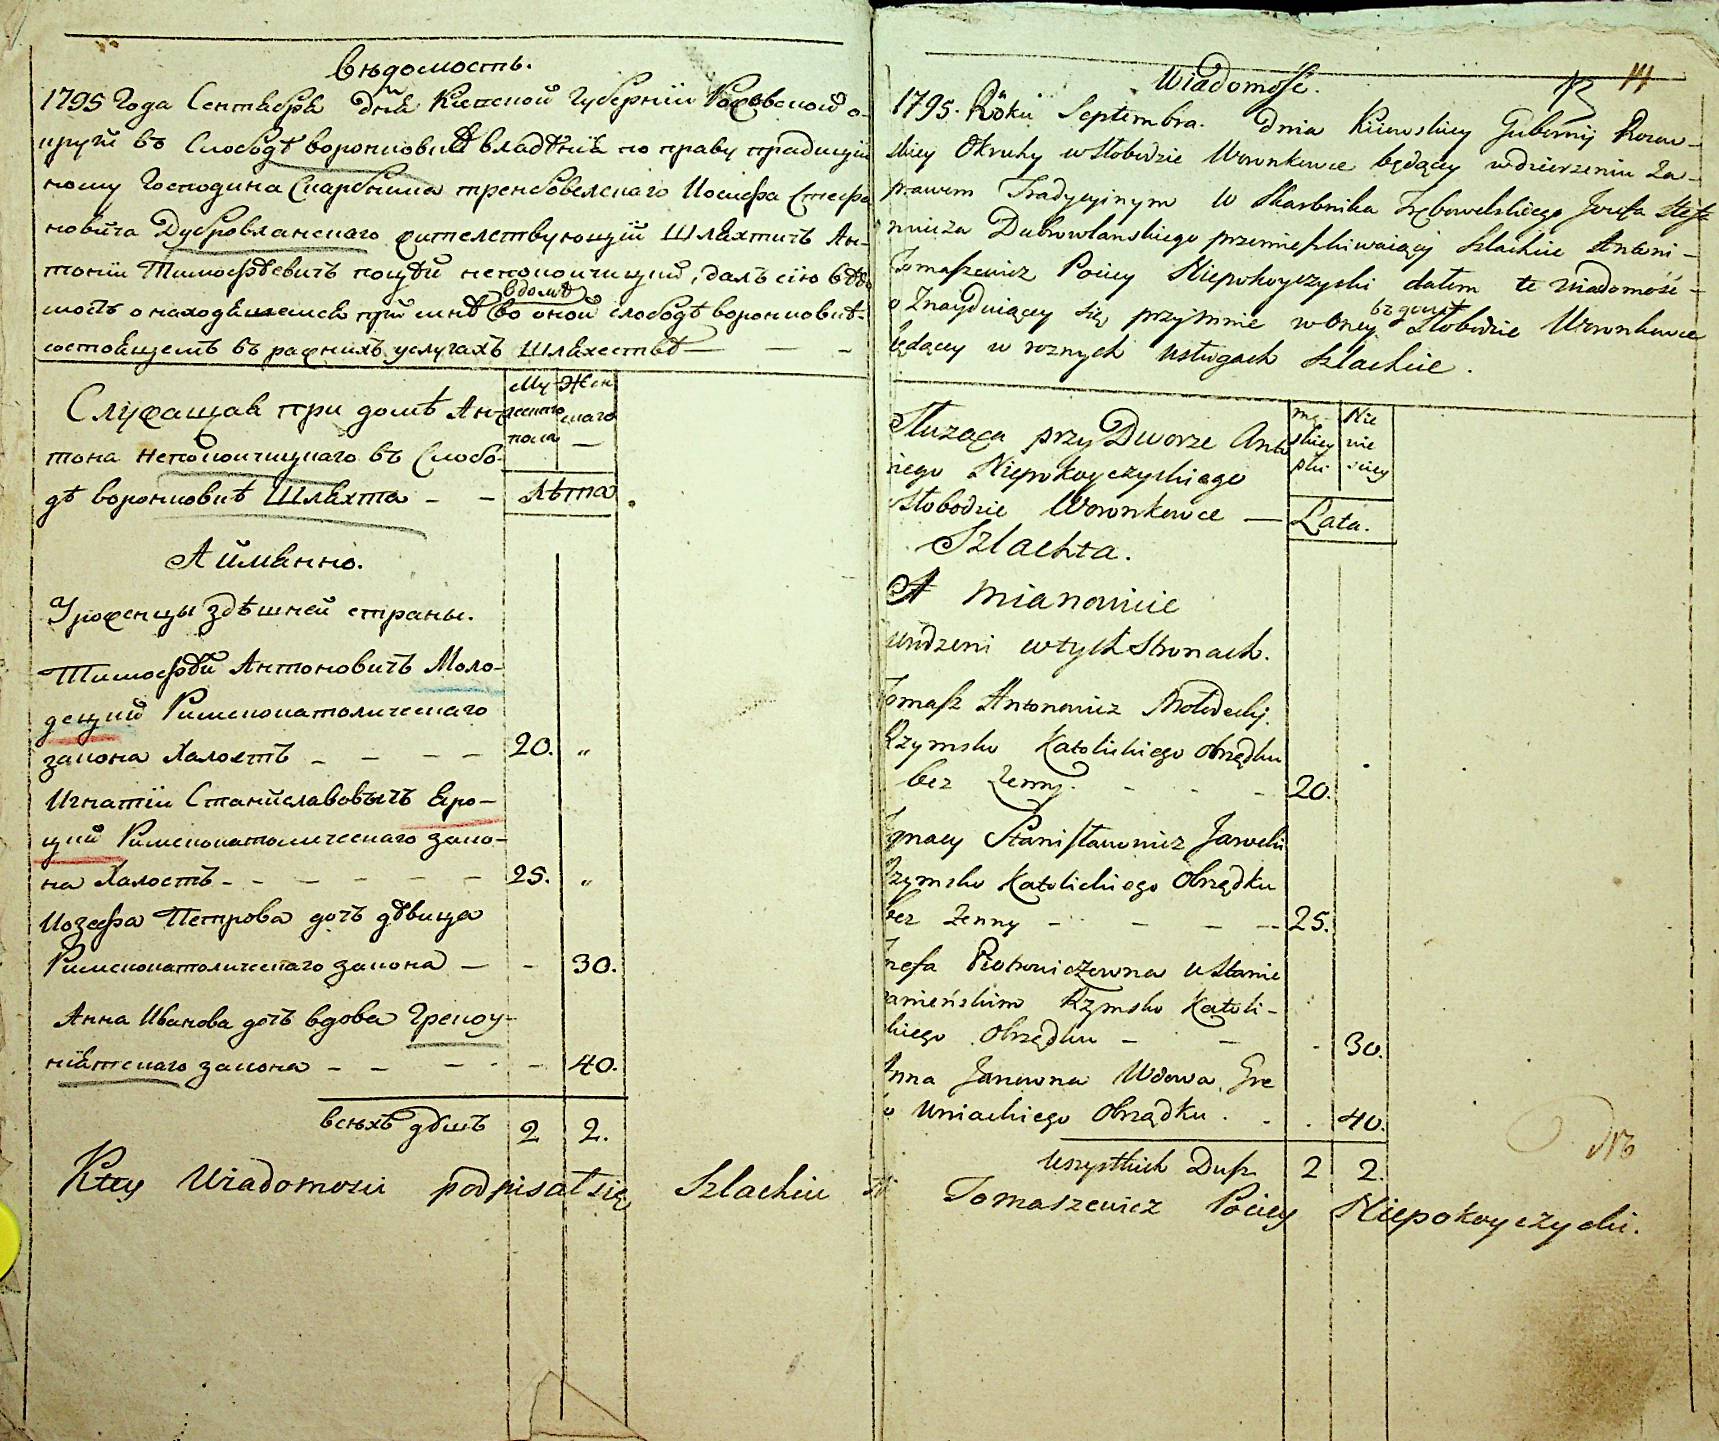 Вѣдомость.
1795 Года Сентября дня Кіевской Губерніи Росовской о-
круги въ Слободѣ Воронковкѣ владѣнія по праву традиций
ному Господина Скарбника трембовелскаго Иосифа Стефа
новича Дубровланскаго жителствующій Шляхтичъ Ан-
тоній Тимофѣевичъ поцѣй непокоичицкий, далъ сію вѣдо
мость о находящемся при мнѣ въ домѣ во оной слободѣ воронковкѣ-
состоящемъ въ разнихъ услугахъ Шляхествѣ — — —
Служащая при домѣ Ан-
тона Непокоичицкаго въ Слобо-
дѣ воронковкѣ Шляхта — —
Му жеска пола
Жен скаго —
Лѣта
А имянно.
Уроженцы здѣшней страны.
Тимофѣй Антоновичъ Моло-
децкий Римскокатолическаго
закона Халостъ — — — — 20. „
Игнатій Станиславовичъ Яро-
цкий Римскокатолическаго зако-
на Халостъ — — — — — 25. „
Иозефа Петрова дочъ дѣвица
Римскокатолическаго закона — - 30.
Анна Иванова дочъ вдова Грекоу-
ніятскаго закона — — — - - 40.
всѣхъ душъ 2 2.
K tey Wiadomosci podpisał się Szlachcic
14
Wiadomość.
1795. Roku Septembra. Dnia Kiiowskiey Gubernij Rosow-
skiey Okruhy w Słobodzie Woronkowce będącey w dzierzeniu za-
prawem Tradycyinym W Skarbnika Trębowelskiego Jozefa Stefa
nowicza Dubrowlanskiego przemieszkiwaiący Szlachcic Antoni-
Tomaszewicz Pociey Niepokoyczyski dałem te wiadomość-
o Znayduiącey się przy mnie w oney Słobodzie Woronkowce
będącey w roznych usługach Szlachcie.
Służąca przy Dworze Anto
niego Niepokoyczyskiego
Słobodzie Woronkowce —
Szlachta.
mę- skiey płci
Nie wie sciey
Lata.
A mianowicie
urodzeni w tych Stronach.
Tomasz Antonowicz Mołodecky.
Rzymsko Katolickiego Obrządku
bez Żenny. - - - 20.
Ignacy Stanisławowicz Jarocki
Rzymsko Katolickiego Obrządku
bez żenny — - — — 25.
Jozefa Piotrowiczowna w Stanie
panieńskim Rzymsko Katoli-
ckiego Obrządku — — - 30.
Anna Janowna Wdowa, Gre
ko Uniackiego Obrządku. - . 40.
wszystkich Dusz 2 2.
Tomaszewicz Pociey Niepokoyczycki.